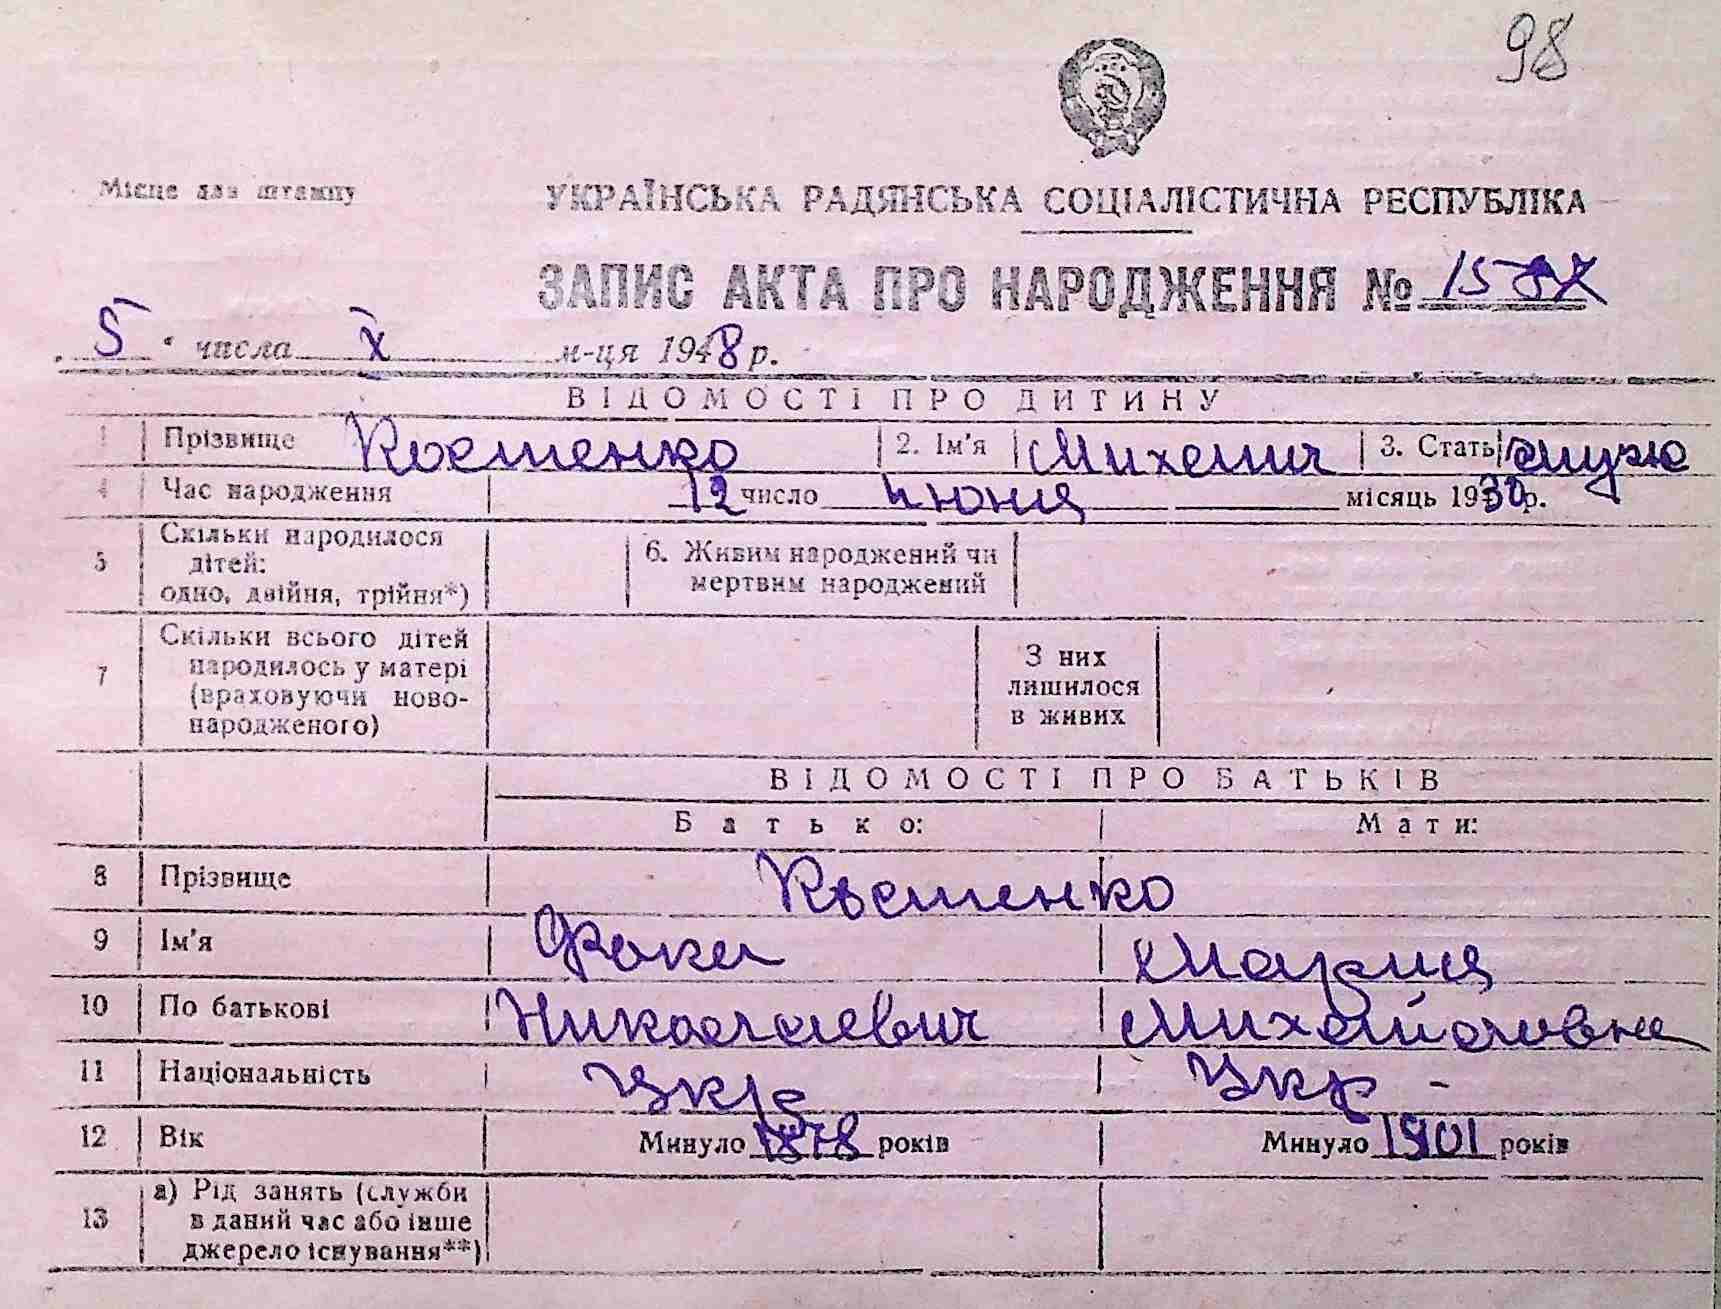 98
Місце для штампу
УКРАЇНСЬКА РАДЯНСЬКА СОЦІАЛІСТИЧНА РЕСПУБЛІКА
ЗАПИС АКТА ПРО НАРОДЖЕННЯ №
5 числа X м-ця 1948 р.
ВІДОМОСТІ ПРО ДИТИНУ
1 Прізвище Костенко 2. Ім'я Михаил 3. Стать
4 Час народження 12 число июня місяць 1930 р.
5 Скільки народилося дітей: одно, двійня, трійня*) 6. Живим народжений чи мертвим народжений
7 Скільки всього дітей народилось у матері (враховуючи новонародженого) З них лишилося в живих
ВІДОМОСТІ ПРО БАТЬКІВ
Батько: Мати:
8 Прізвище Костенко
9 Ім'я Фока Мария
10 По батькові Николаевич Михайловна
11 Національність Укр Укр -
12 Вік Минуло 1878 років Минуло 1901 років
13 а) Рід занять (служби в даний час або інше джерело існування**)